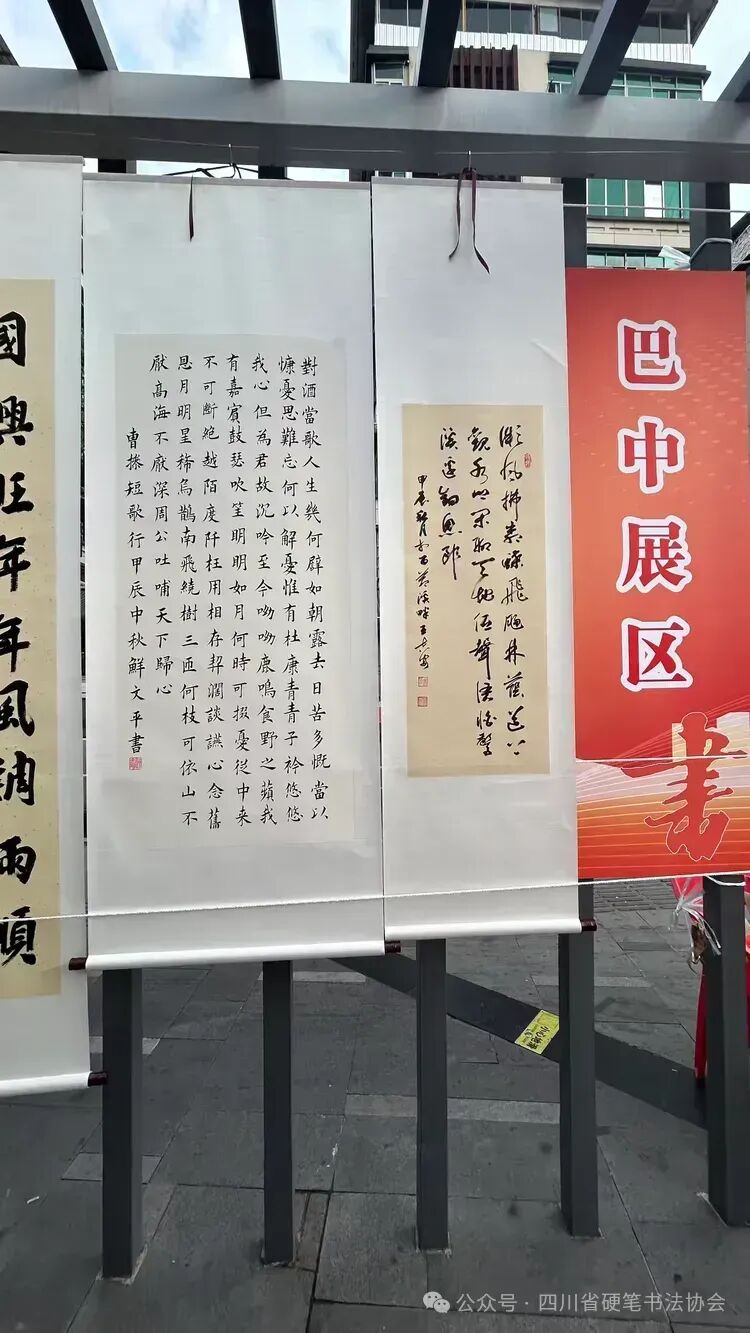 巴中展区
書
微风拂
甲辰秋月
對酒當歌人生幾何辟如朝露去日苦多慨當以
慷憂思難忘何以解憂惟有杜康青青子衿悠悠
我心但為君故沉吟至今呦呦鹿鳴食野之蘋我
有嘉賓鼓瑟吹笙明明如月何時可掇憂從中来
不可斷絕越陌度阡枉用相存契濶談讌心念舊
恩月明星稀烏鵲南飛繞樹三匝何枝可依山不
厭高海不厭深周公吐哺天下歸心
曹操短歌行甲辰中秋鮮文平書
國興旺年年風調雨順
小心地滑
公众号·四川省硬笔书法协会